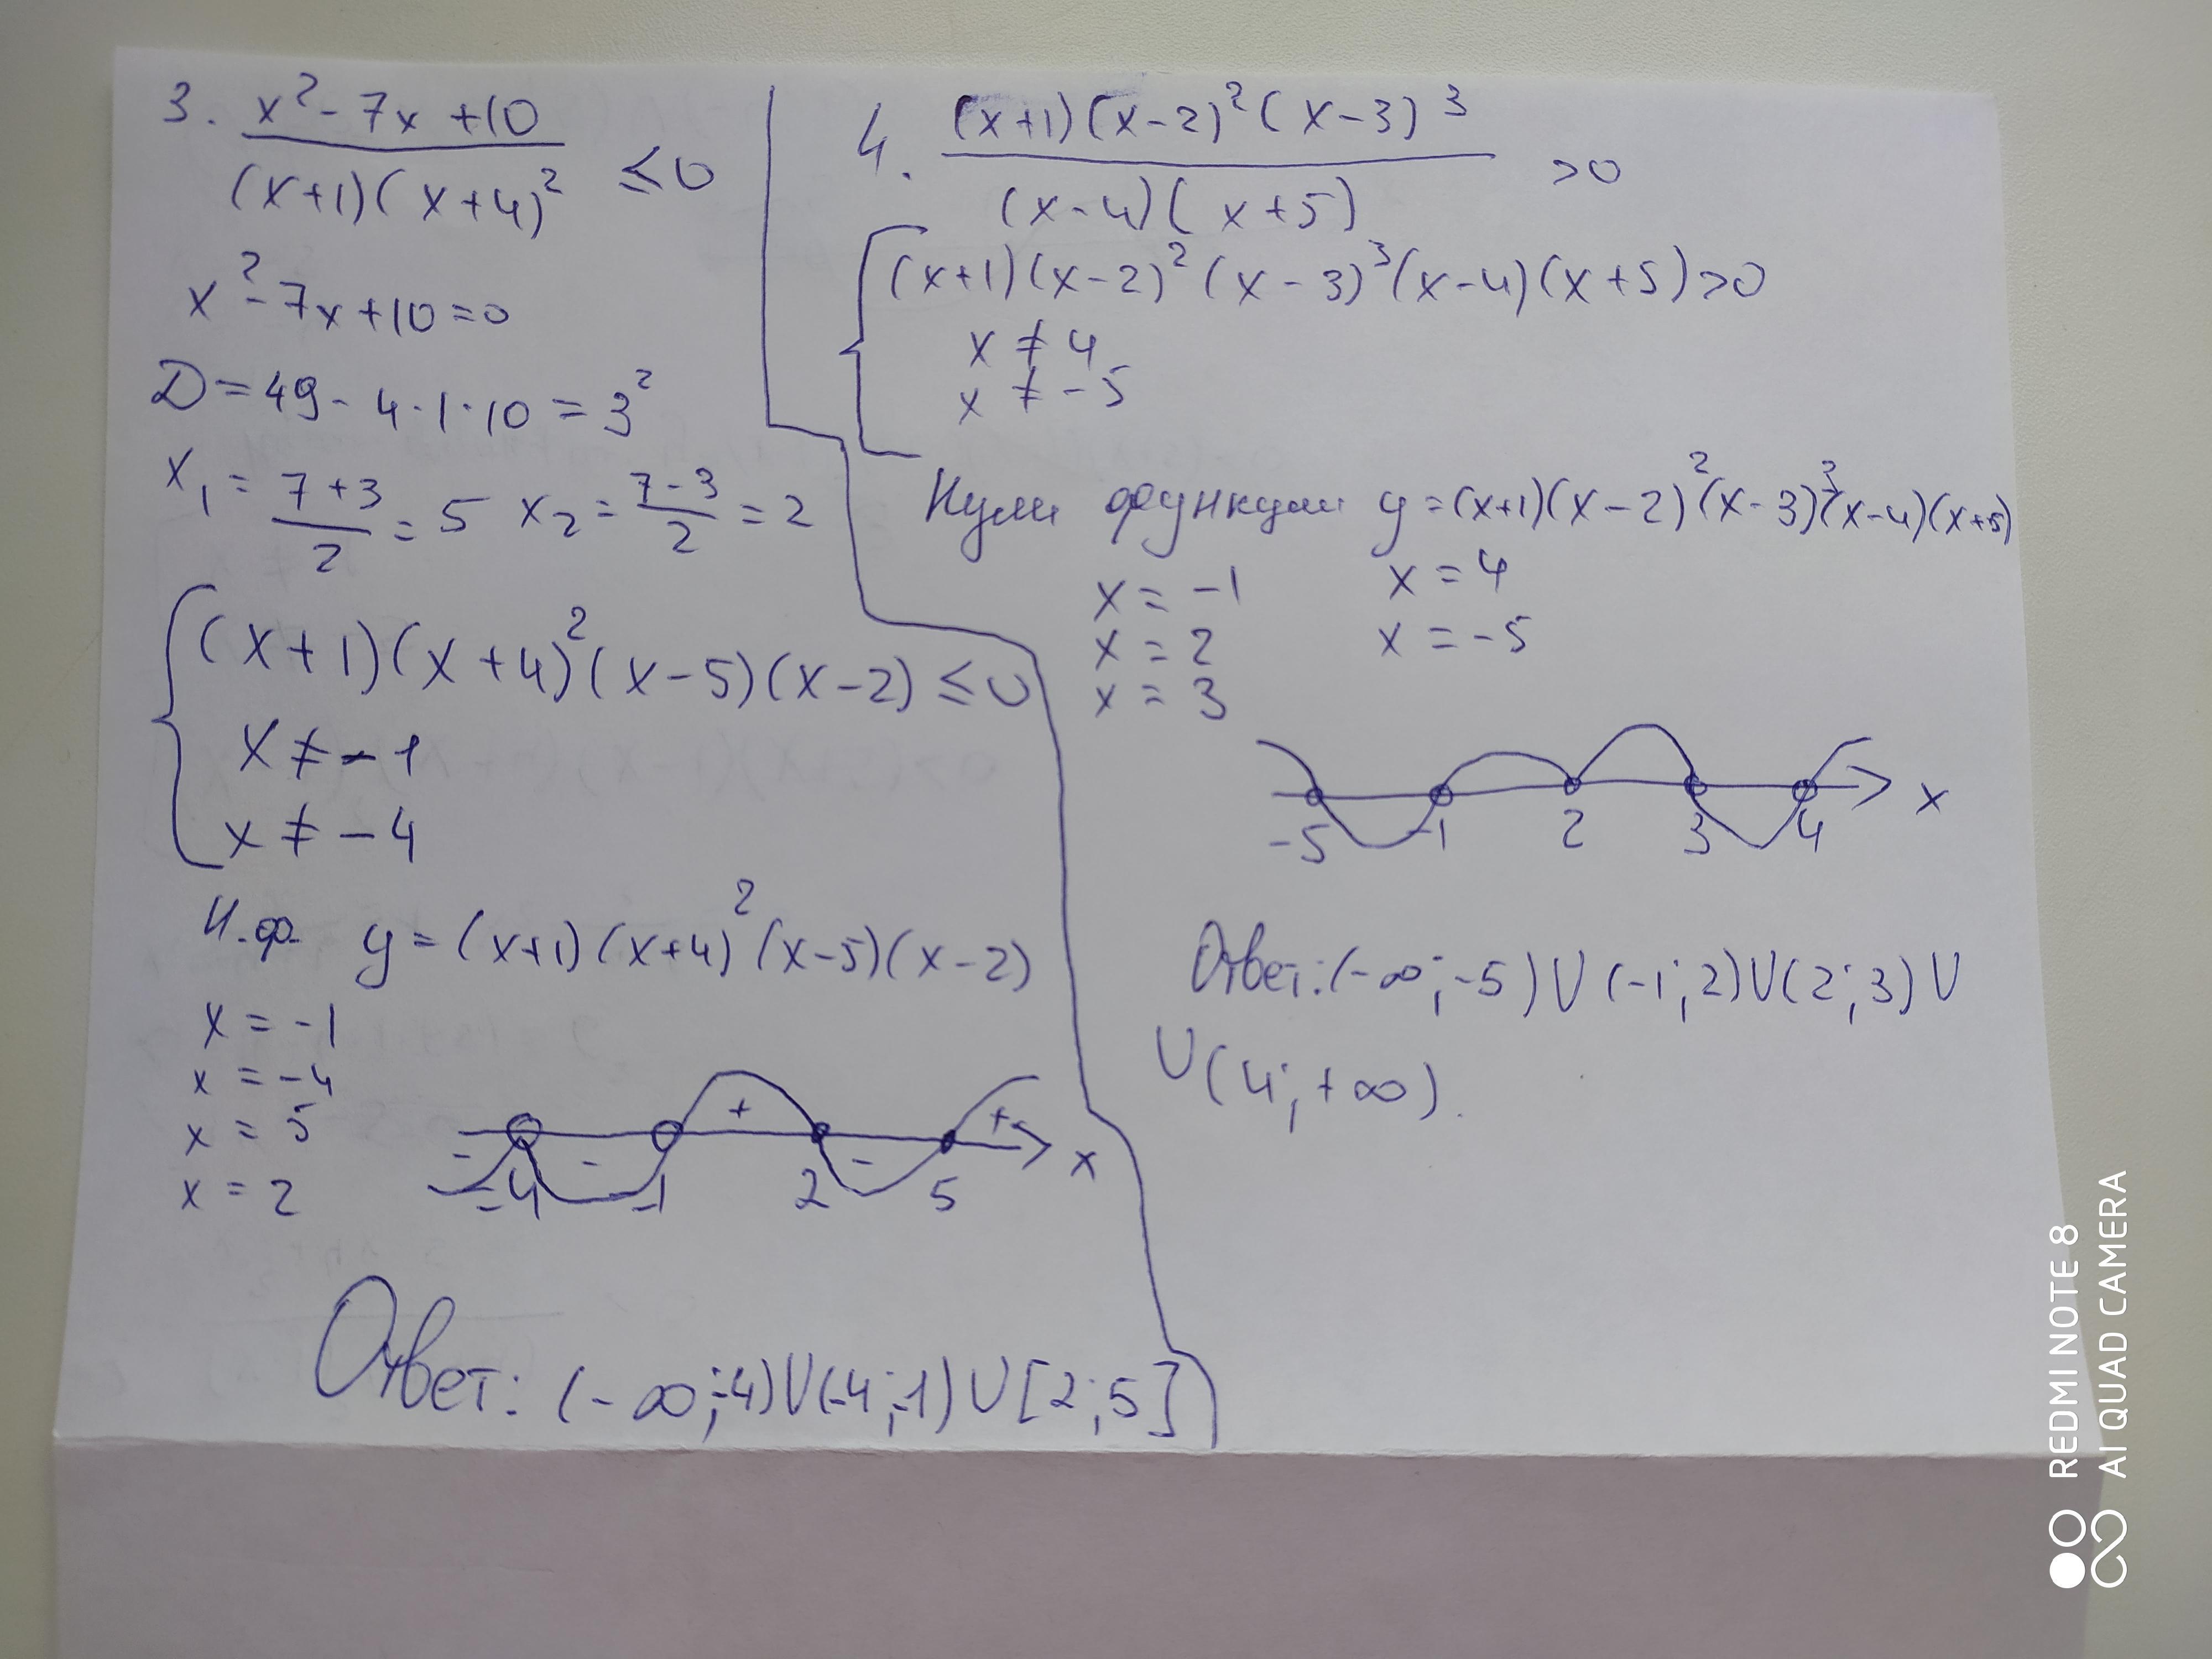 3. x² - 7x + 10
(x+1)(x+4)² ≤ 0
x² - 7x + 10 = 0
D = 49 - 4·1·10 = 3²
x₁ = 7+3/2 = 5 x₂ = 7-3/2 = 2
(x+1)(x+4)²(x-5)(x-2) ≤ 0
x ≠ -1
x ≠ -4
Н.ф. y = (x+1)(x+4)²(x-5)(x-2)
x = -1
x = -4
x = 5
x = 2
- - + - +
-4 -1 2 5 x
Ответ: (-∞;-4)U(-4;-1)U[2;5]
4. (x+1)(x-2)²(x-3)³
(x-4)(x+5) >0
(x+1)(x-2)²(x-3)³(x-4)(x+5)>0
x ≠ 4
x ≠ -5
Нули функции y = (x+1)(x-2)²(x-3)³(x-4)(x+5)
x = -1 x = 4
x = 2 x = -5
x = 3
-5 -1 2 3 4 x
Ответ: (-∞;-5)U(-1;2)U(2;3)U
U(4;+∞).
REDMI NOTE 8
AI QUAD CAMERA